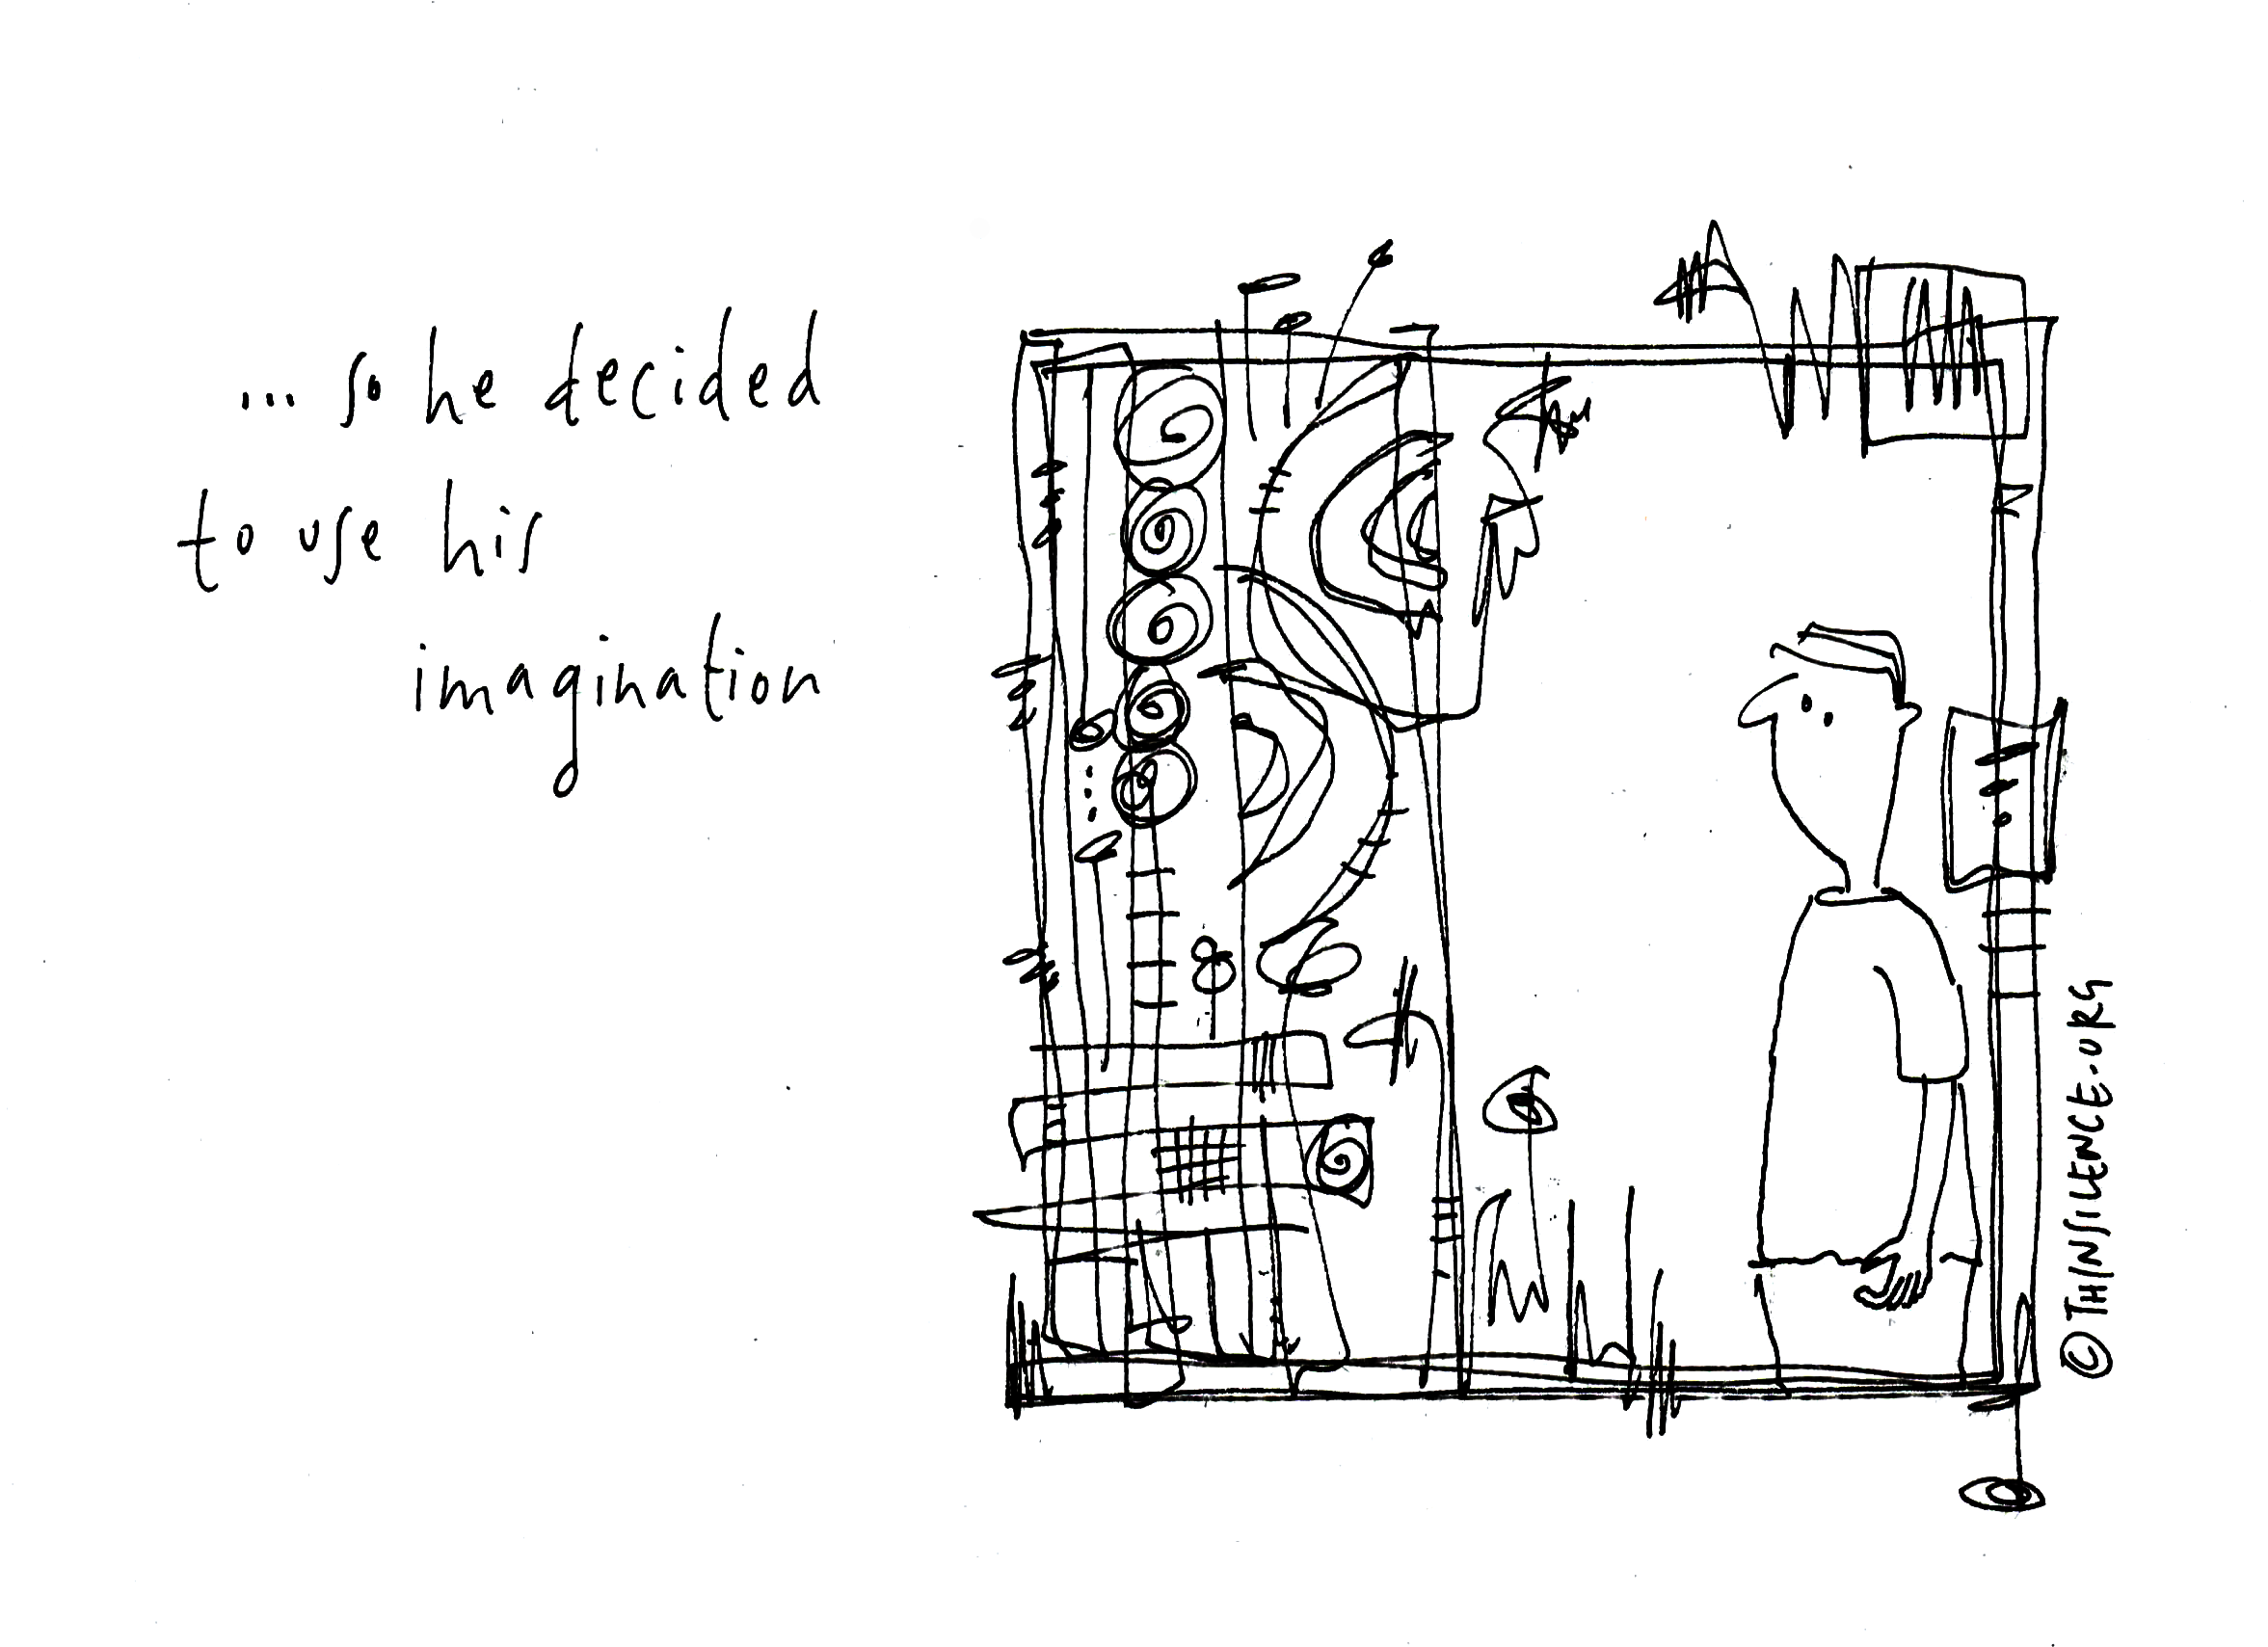 ... so he decided
to use his
imagination
© THINSILENCE.ORG